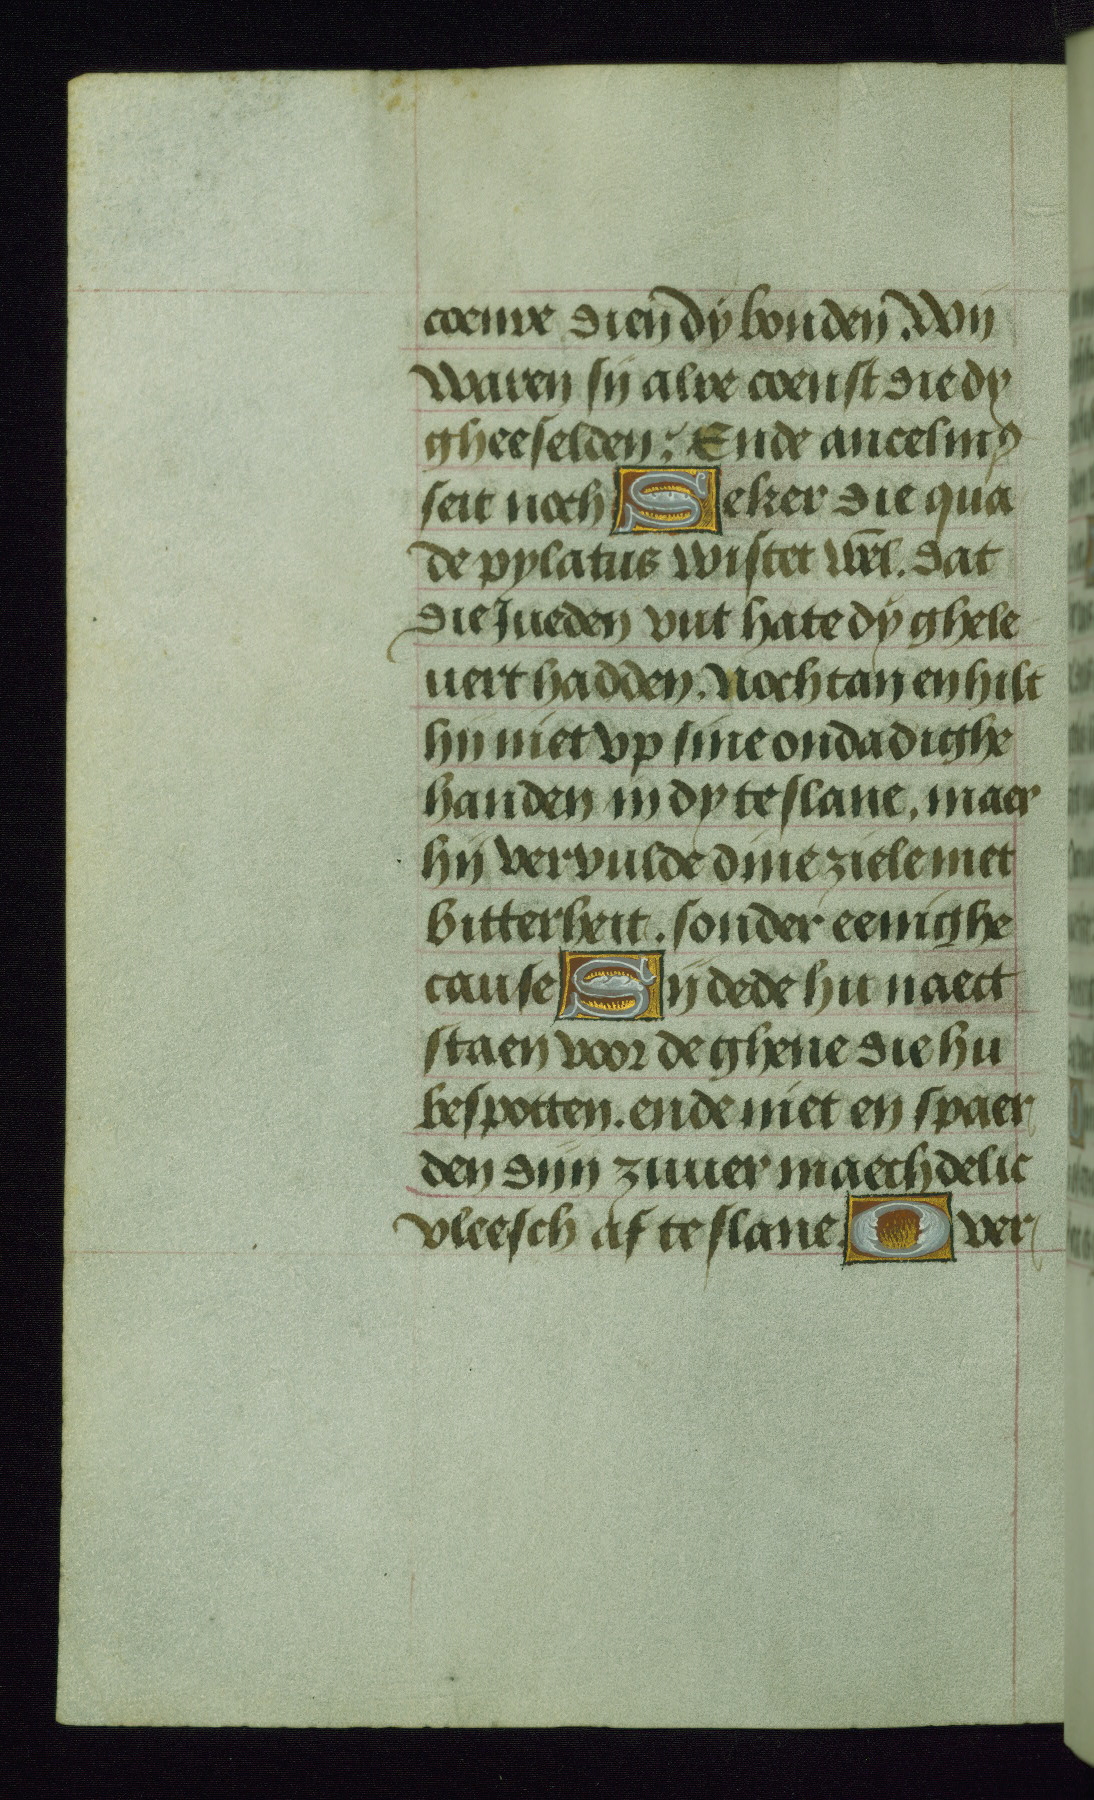 coene dien dy bonden. Wij
waren sij alre coenst die dy
gheeselden; Ende ancelmꝰ
seit noch Seker die qua
de pylatus wistet wel. dat
die Jueden vut hate dy ghele
uert hadden. Nochtan en hilt
hij niet vp sine ondadighe
handen in dy te slane, maer
hij vervulde dine ziele met
bitterheit. sonder eenighe
cause Sij dede hu naect
staen voor de ghene die hu
bespotten. ende niet en spaer
den dijn zuuer maechdelic
vleesch af te slane. O ver